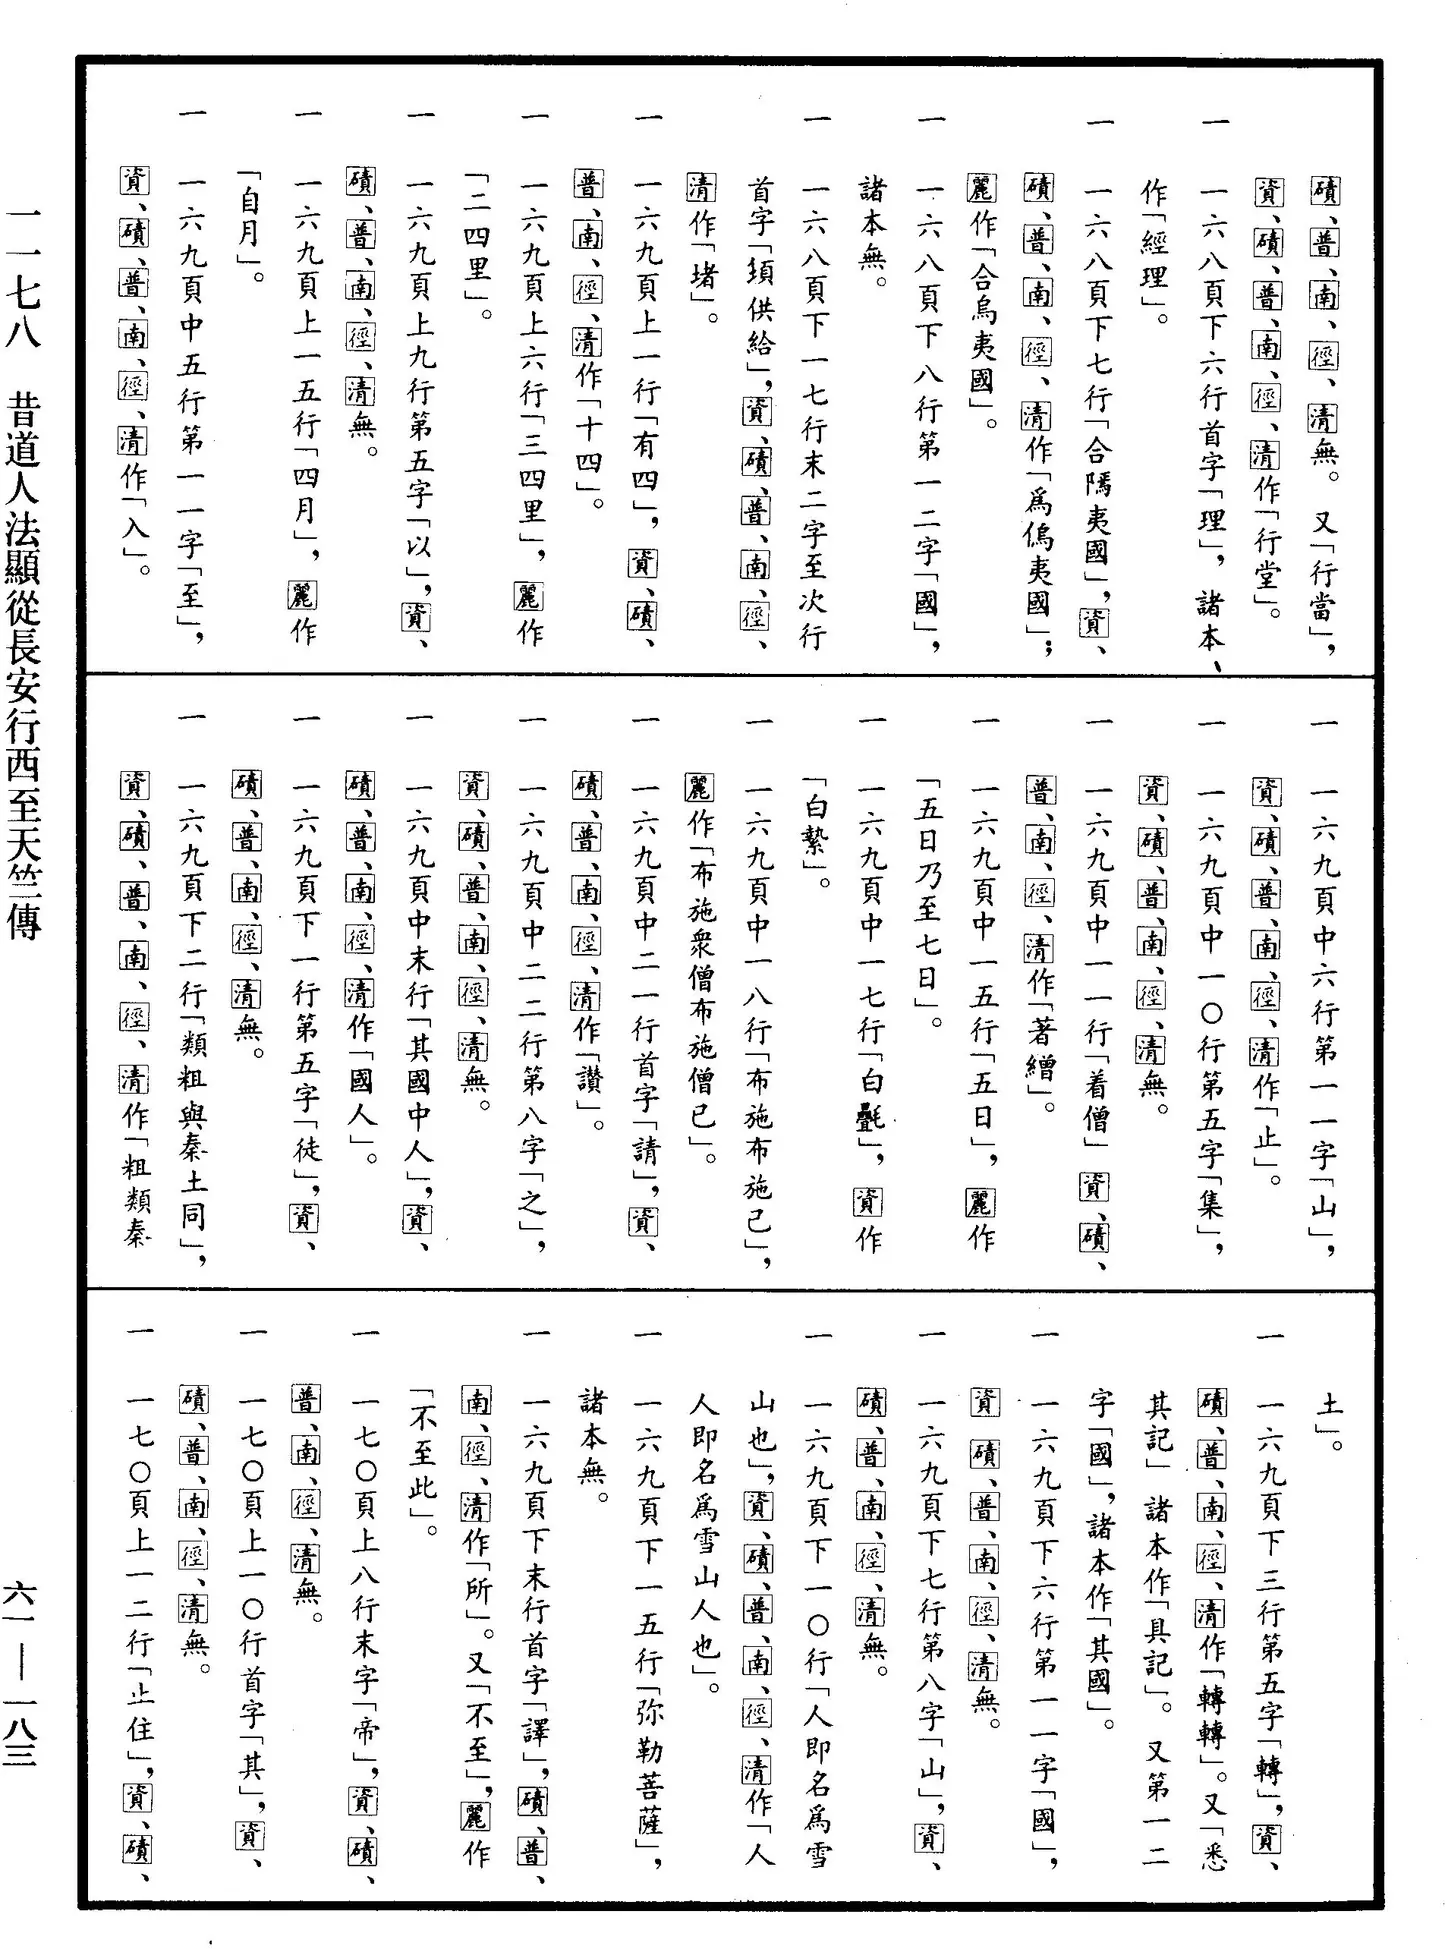 磧、普、南、徑、清無。又「行當」，
資、磧、普、南、徑、清作「行堂」。
一 一六八頁下六行首字「理」，諸本、
作「經理」。
一 一六八頁下七行「合隖夷國」，資、
磧、普、南、徑、清作「爲傿夷國」；
麗作「合烏夷國」。
一 一六八頁下八行第一二字「國」，
諸本無。
一 一六八頁下一七行末二字至次行
首字「湏供給」，資、磧、普、南、徑、
清作「堵」。
一 一六九頁上一行「有四」，資、磧、
普、南、徑、清作「十四」。
一 一六九頁上六行「三四里」，麗作
「二四里」。
一 一六九頁上九行第五字「以」，資、
磧、普、南、徑、清無。
一 一六九頁上一五行「四月」，麗作
「自月」。
一 一六九頁中五行第一一字「至」，
資、磧、普、南、徑、清作「入」。
一 一六九頁中六行第一一字「山」，
資、磧、普、南、徑、清作「止」。
一 一六九頁中一〇行第五字「集」，
資、磧、普、南、徑、清無。
一 一六九頁中一一行「着僧」資、磧、
普、南、徑、清作「著繒」。
一 一六九頁中一五行「五日」，麗作
「五日乃至七日」。
一 一六九頁中一七行「白㲲」，資作
「白縶」。
一 一六九頁中一八行「布施布施已」，
麗作「布施衆僧布施僧已」。
一 一六九頁中二一行首字「請」，資、
磧、普、南、徑、清作「讃」。
一 一六九頁中二二行第八字「之」，
資、磧、普、南、徑、清無。
一 一六九頁中末行「其國中人」，資、
磧、普、南、徑、清作「國人」。
一 一六九頁下一行第五字「徒」，資、
磧、普、南、徑、清無。
一 一六九頁下二行「類粗與秦土同」，
資、磧、普、南、徑、清作「粗類秦
土」。
一 一六九頁下三行第五字「轉」，資、
磧、普、南、徑、清作「轉轉」。又「悉
其記」諸本作「具記」。又第一二
字「國」，諸本作「其國」。
一 一六九頁下六行第一一字「國」，
資 磧、普、南、徑、清無。
一 一六九頁下七行第八字「山」，資、
磧、普、南、徑、清無。
一 一六九頁下一〇行「人即名爲雪
山也」，資、磧、普、南、徑、清作「人
人即名爲雪山人也」。
一 一六九頁下一五行「弥勒菩薩」，
諸本無。
一 一六九頁下末行首字「譯」，磧、普、
南、徑、清作「所」。又「不至」，麗作
「不至此」。
一 一七〇頁上八行末字「帝」，資、磧、
普、南、徑、清無。
一 一七〇頁上一〇行首字「其」，資、
磧、普、南、徑、清無。
一 一七〇頁上一二行「止住」，資、磧、
一一七八 昔道人法顯從長安行西至天竺傳
六一—一八三